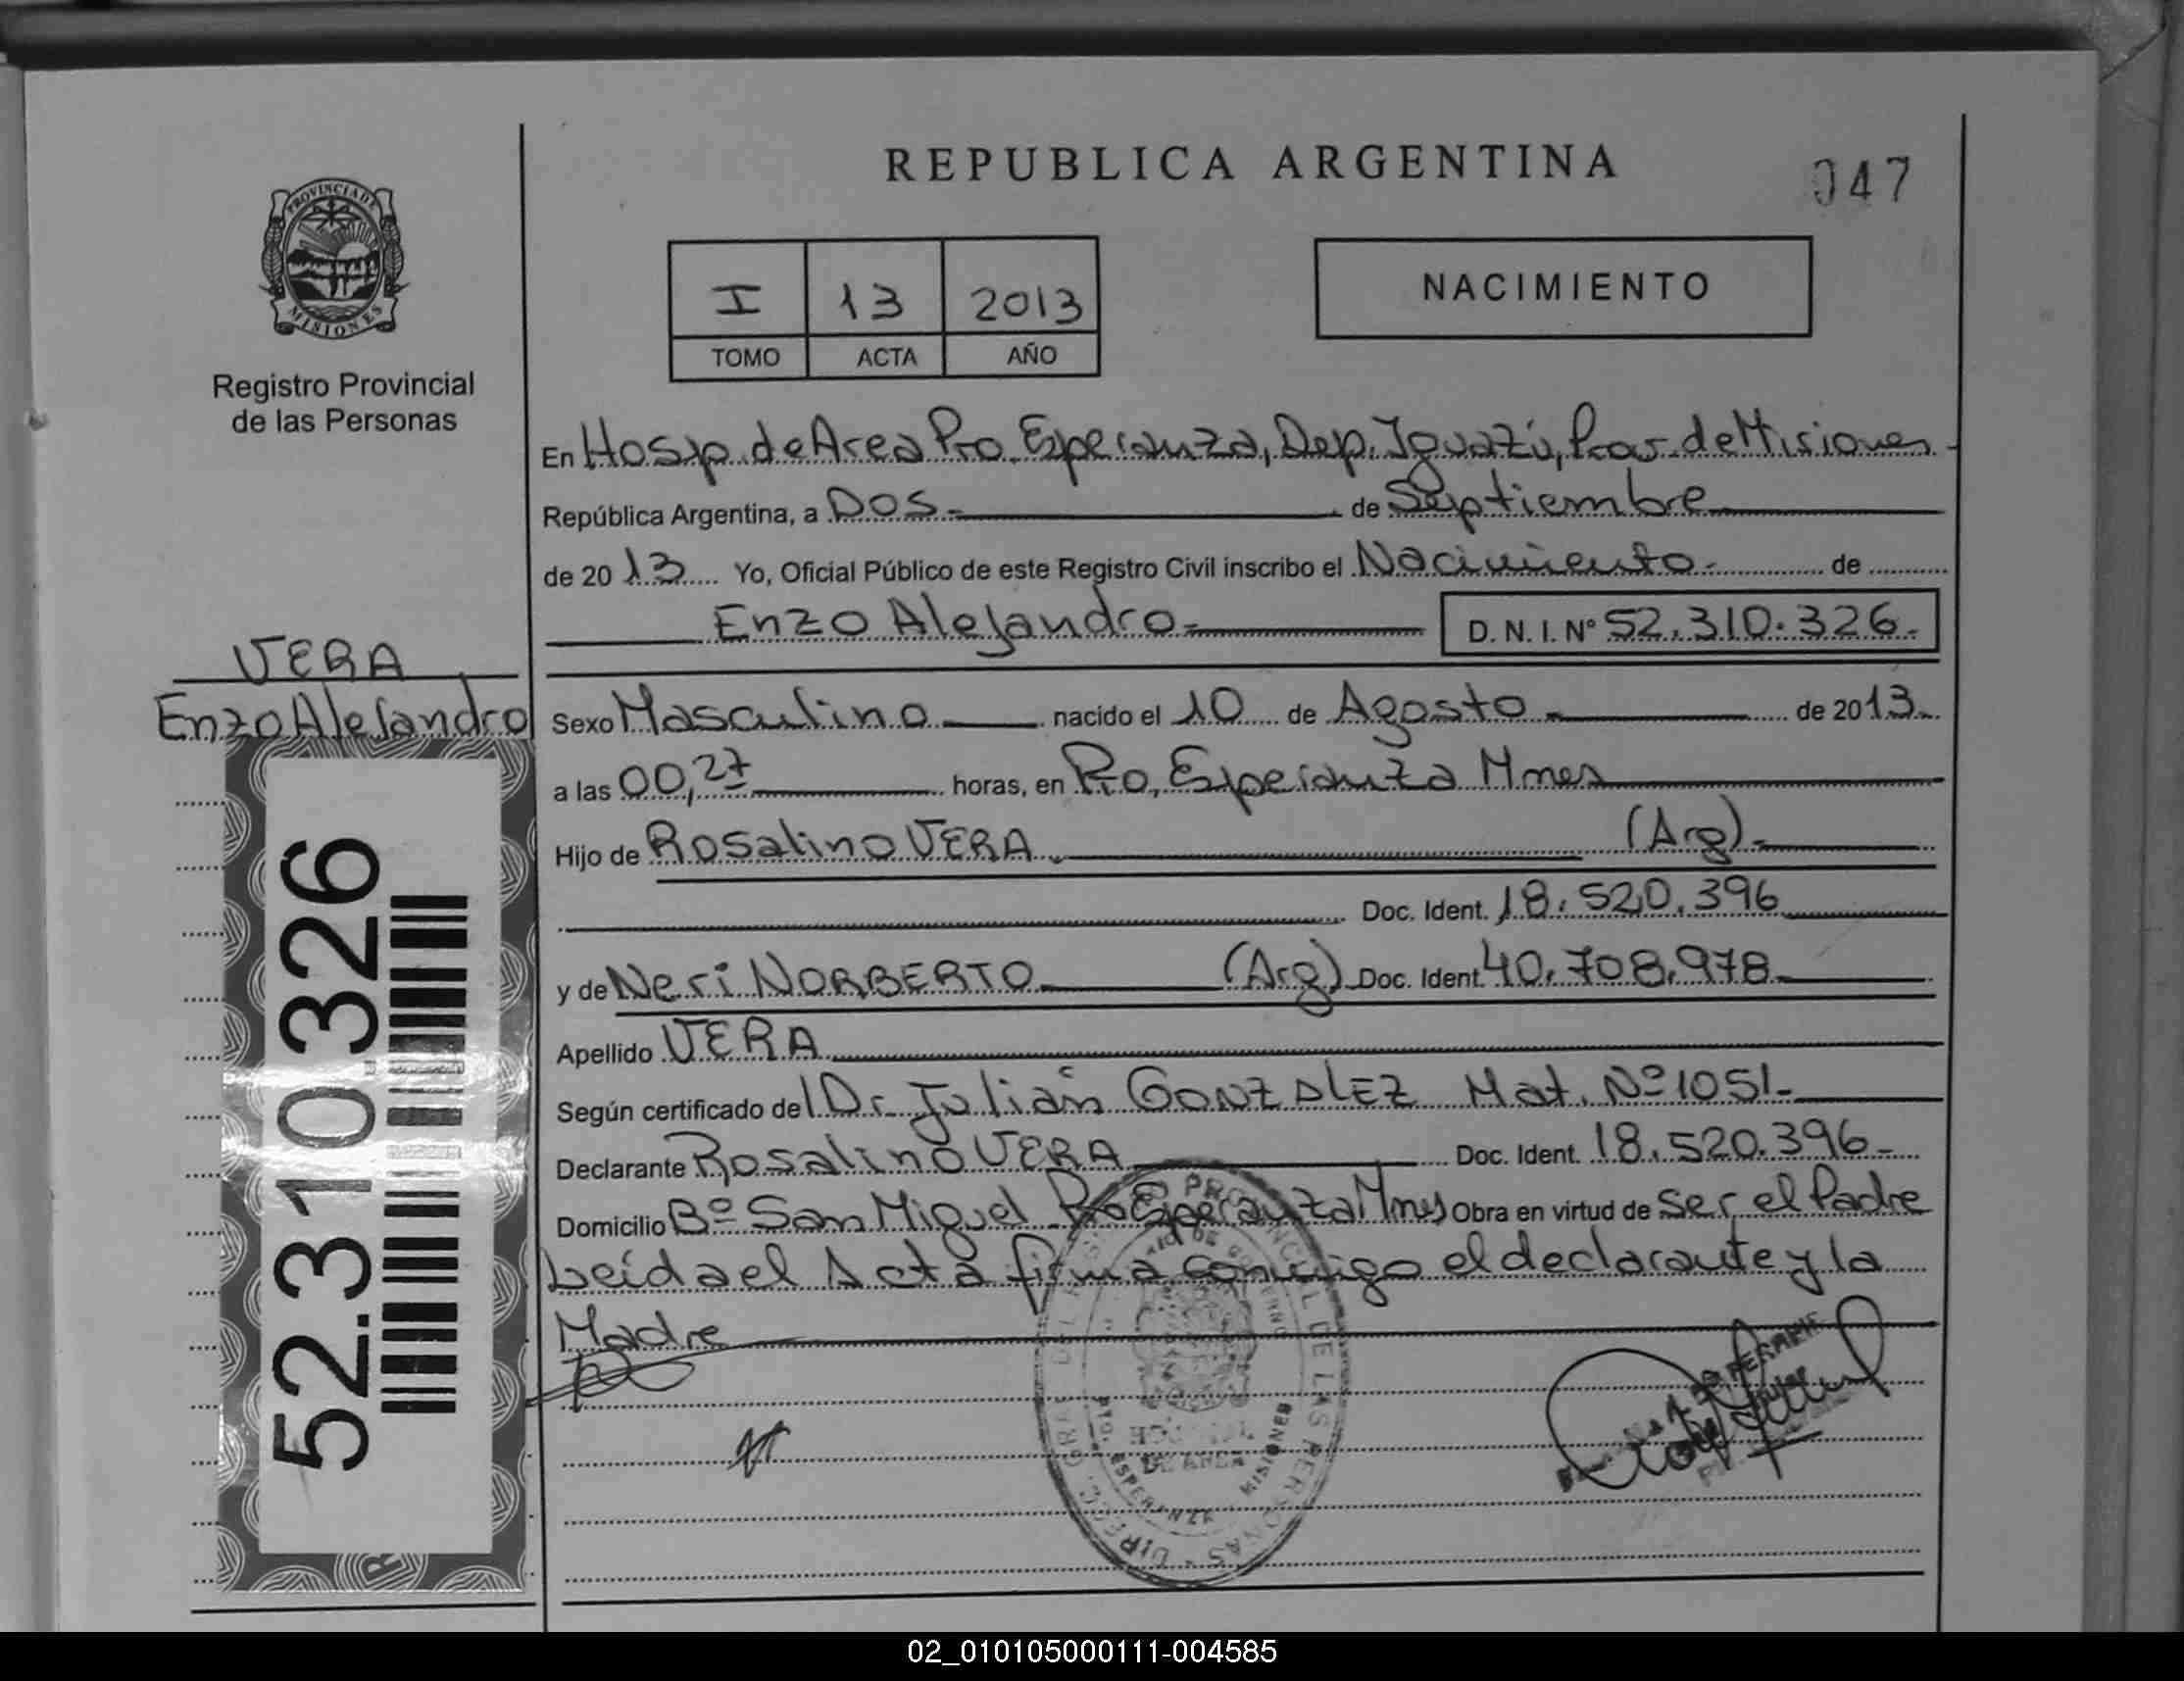 REPUBLICA ARGENTINA
047
PROVINCIA DE
MISIONES
Registro Provincial
de las Personas
I 13 2013
TOMO ACTA AÑO
NACIMIENTO
En Hosp. de Area Pto. Esperanza, Dep. Iguazú, Prov. de Misiones.-
República Argentina, a Dos.- de Septiembre
de 20 13 Yo, Oficial Público de este Registro Civil inscribo el Nacimiento.- de
Enzo Alejandro.- D. N. I. Nº 52.310.326.-
VERA
Enzo Alejandro
Sexo Masculino nacido el 10 de Agosto.- de 20 13.
a las 00,27 horas, en Pto. Esperanza Mnes
Hijo de Rosalino VERA.- (Arg).-
Doc. Ident. 18.520.396
y de Neri NORBERTO (Arg) Doc. Ident. 40.708.978.-
Apellido VERA
Según certificado del Dr. Julián GONZALEZ Mat. Nº 1051.-
Declarante Rosalino VERA Doc. Ident. 18.520.396.-
Domicilio Bº San Miguel Pto Esperanza Mnes Obra en virtud de ser el Padre
Leída el Acta firma conmigo el declarante y la
Madre
52.310.326
DE LAS PERSONAS
DE AREA
ESPERANZA
MISIONES
02_010105000111-004585